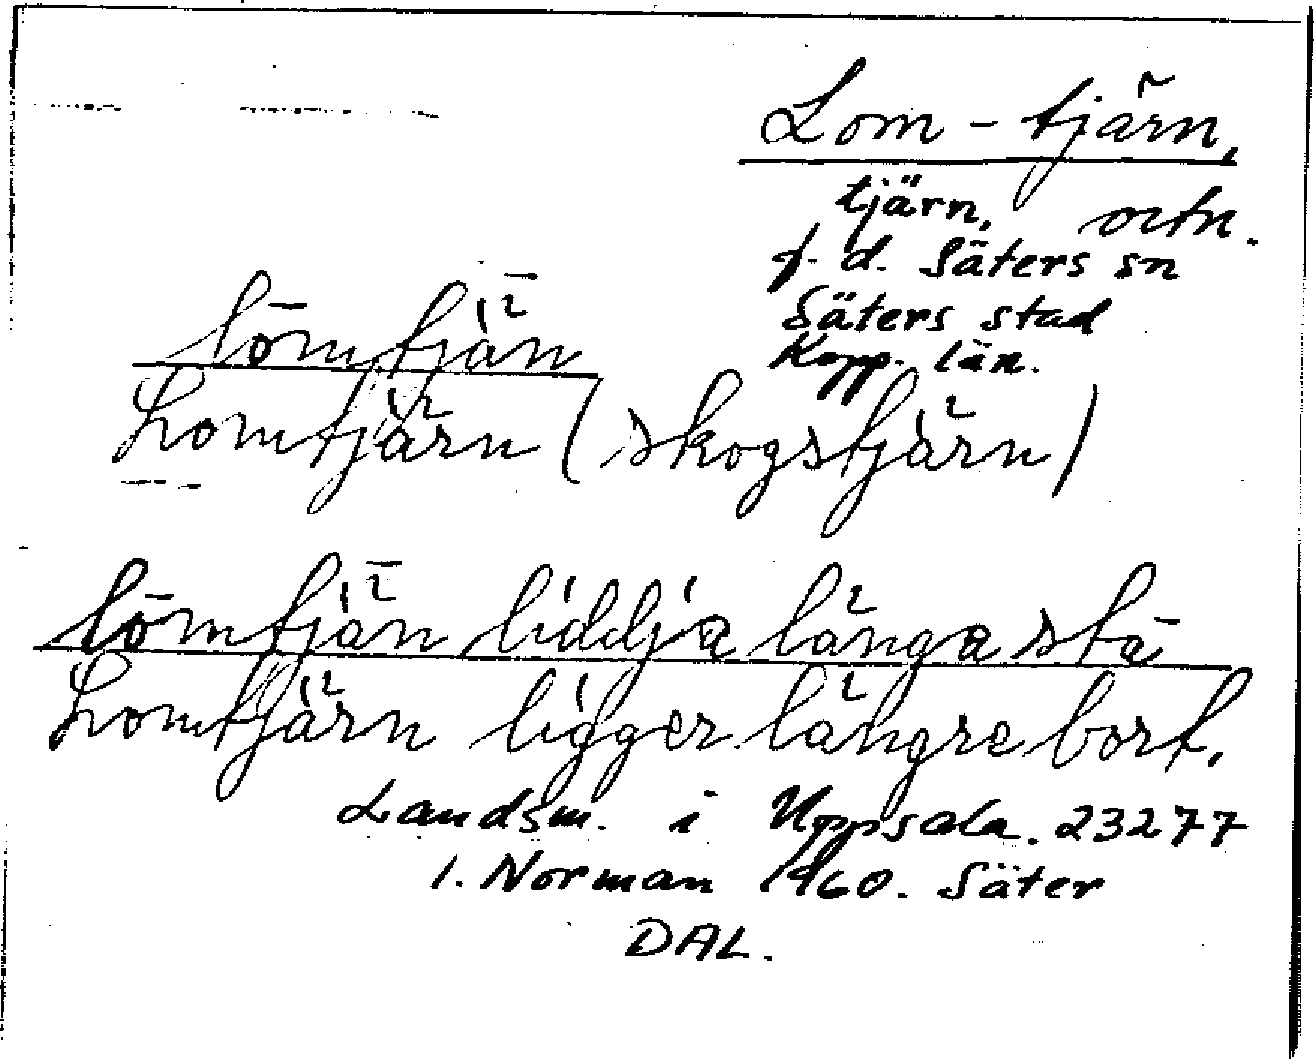 Lom-tjärn,
tjärn, ortn.
f. d. Säters sn
Säters stad
Kopp. län.
lōmtjän
Lomtjärn (skogstjärn)
lōmtjän liddja länga stā
Lomtjärn ligger längre bort.
Landsm. i Uppsala. 23277
I. Norman 1960. Säter
DAL.